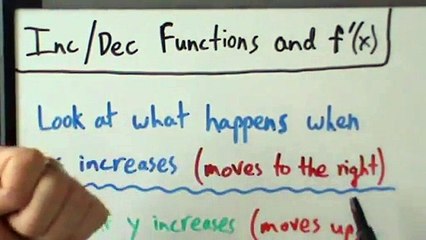 Inc/Dec Functions and f'(x)
Look at what happens when
increases (moves to the right)
y increases (moves up